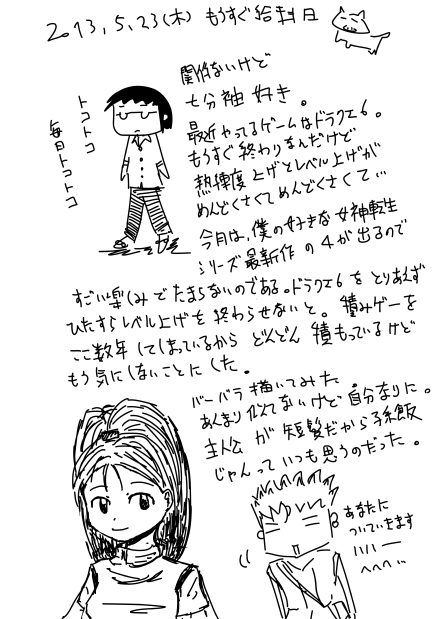 2013,5,23(木) もうすぐ給料日
関係ないけど
七分袖好き。
トコトコ
毎日トコトコ
最近やってるゲームはドラクエ6。
もうすぐ終わりなんだけど
熟練度上げとレベル上げが
めんどくさくてめんどくさくて…
今月は、僕の好きな女神転生
シリーズ最新作の4が出るので
すごい楽しみでたまらないのである。ドラクエ6をとりあえず
ひたすらレベル上げを終わらせないと。積みゲーを
ここ数年してしまっているからどんどん積もっているけど
もう気にしないことにした。
バーバラ描いてみた
あんまり似てないけど。自分なりに。
主人公が短髪だから孫飯
じゃんっていつも思うのだった。
あなたに
ついていきます
ハハハー
へへへ